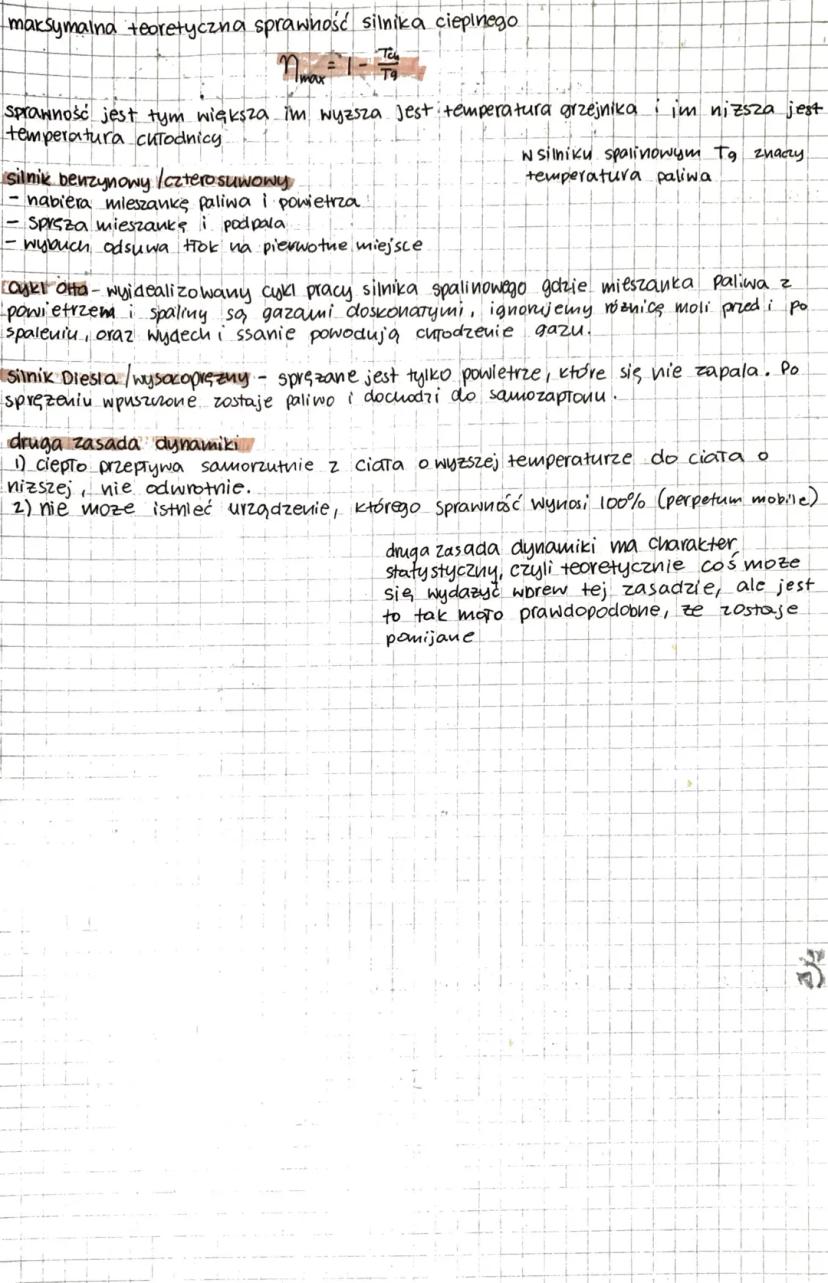 maksymalna teoretyczna sprawność silnika cieplnego
η max = 1 - Tch/Tg
sprawność jest tym większa im wyższa jest temperatura grzejnika i im niższa jest
temperatura chłodnicy
w silniku spalinowym Tg znaczy
temperatura paliwa
silnik benzynowy /czterosuwowy
- nabiera mieszankę paliwa i powietrza
- spręża mieszankę i podpala
- wybuch odsuwa tłok na pierwotne miejsce
cykl Otta - wyidealizowany cykl pracy silnika spalinowego gdzie mieszanka paliwa z
powietrzem i spaliny są gazami doskonałymi, ignorujemy różnicę moli przed i po
spaleniu, oraz wydech i ssanie powodują chłodzenie gazu.
silnik Diesla /wysokoprężny - sprężane jest tylko powietrze, które się nie zapala. Po
sprężeniu wpuszczone zostaje paliwo i dochodzi do samozapłonu.
druga zasada dynamiki
1) ciepło przepływa samorzutnie z ciała o wyższej temperaturze do ciała o
niższej, nie odwrotnie.
2) nie może istnieć urządzenie, którego sprawność wynosi 100% (perpetum mobile)
druga zasada dynamiki ma charakter
statystyczny, czyli teoretycznie coś może
się wydażyć wbrew tej zasadzie, ale jest
to tak mało prawdopodobne, że zostaje
pomijane